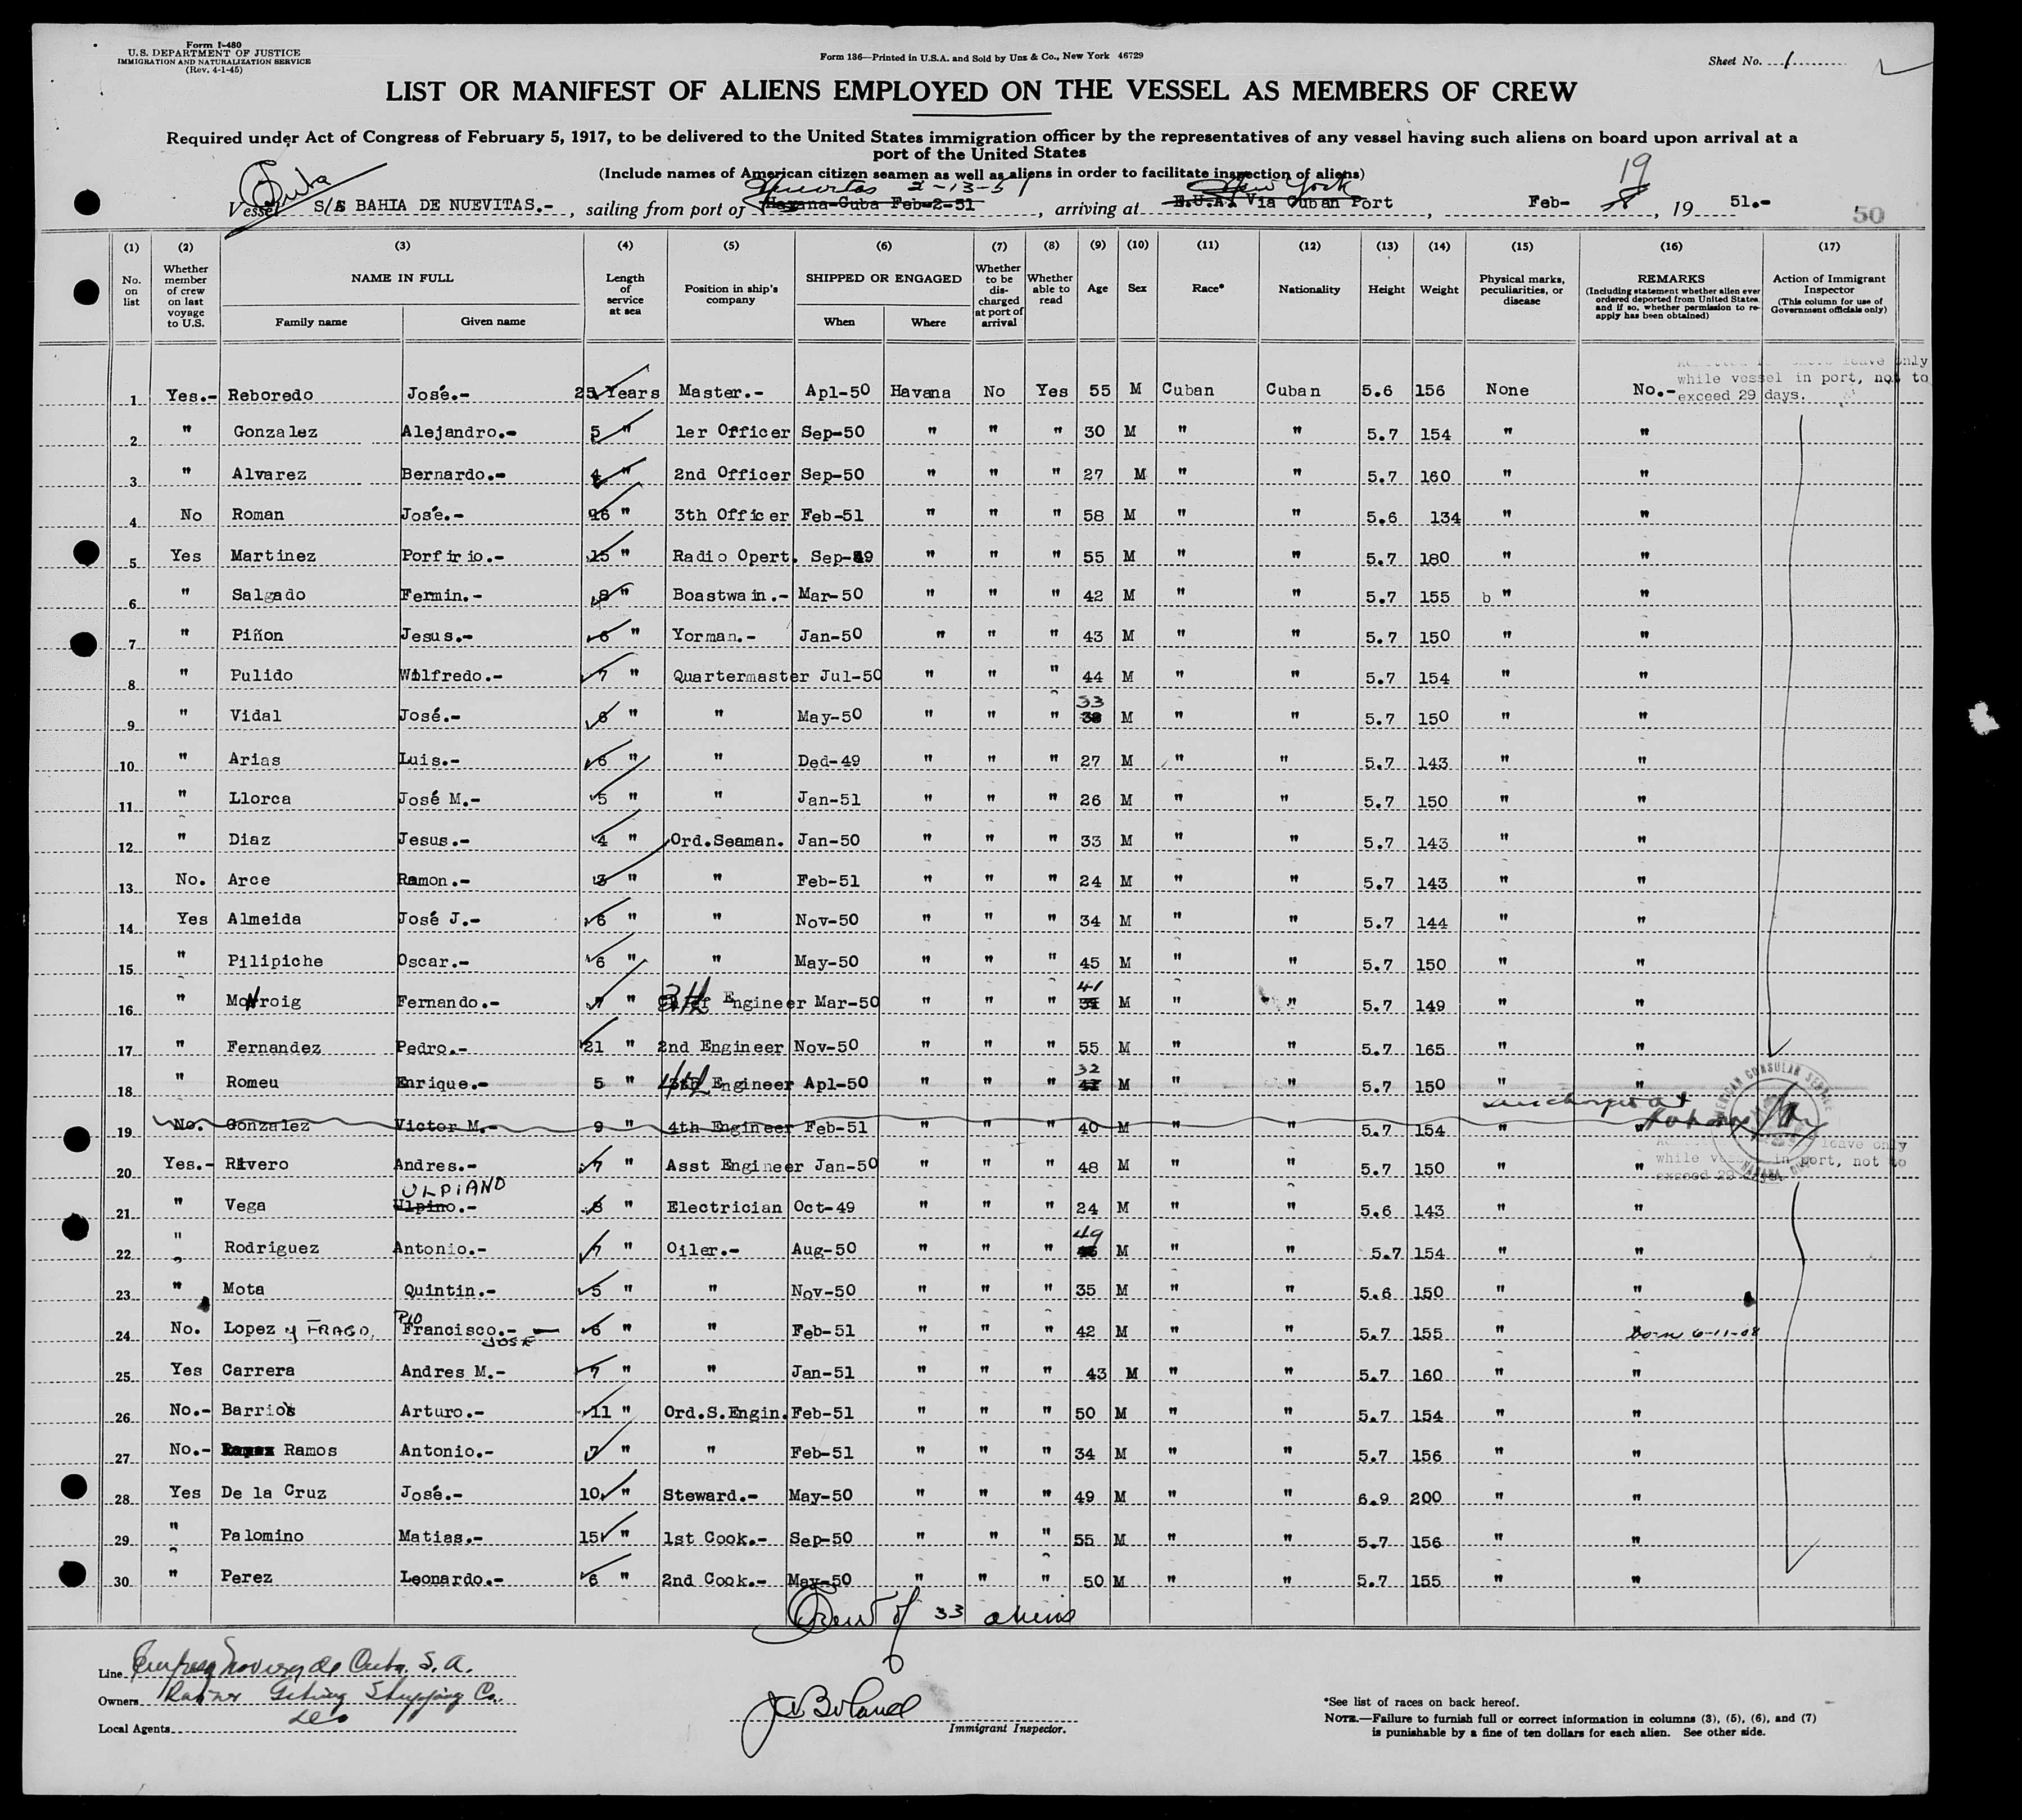 Form I-480
U.S. DEPARTMENT OF JUSTICE
IMMIGRATION AND NATURALIZATION SERVICE
(Rev. 4-1-45)
Form 136—Printed in U.S.A. and Sold by Unz & Co., New York 46729
Sheet No. 1
LIST OR MANIFEST OF ALIENS EMPLOYED ON THE VESSEL AS MEMBERS OF CREW
Required under Act of Congress of February 5, 1917, to be delivered to the United States immigration officer by the representatives of any vessel having such aliens on board upon arrival at a
port of the United States
(Include names of American citizen seamen as well as aliens in order to facilitate inspection of aliens)
Cuba Nuevitas 2-13-51 New York 19
Vessel S/S BAHIA DE NUEVITAS.- , sailing from port of Havana-Cuba Feb-2-51 , arriving at E.U.A. Via Cuban Port , Feb- 8 , 19 51.-
50
(1) (2) (3) (4) (5) (6) (7) (8) (9) (10) (11) (12) (13) (14) (15) (16) (17)
No. on list
Whether member of crew on last voyage to U.S.
NAME IN FULL
Family name Given name
Length of service at sea
Position in ship's company
SHIPPED OR ENGAGED
When Where
Whether to be discharged at port of arrival
Whether able to read
Age
Sex
Race*
Nationality
Height
Weight
Physical marks, peculiarities, or disease
REMARKS
(Including statement whether alien ever ordered deported from United States, and if so, whether permission to re-apply has been obtained)
Action of Immigrant Inspector
(This column for use of Government officials only)
leave only
while vessel in port, not to
exceed 29 days.
1 Yes.- Reboredo José.- 25 Years Master.- Apl-50 Havana No Yes 55 M Cuban Cuban 5.6 156 None No.-
2 " Gonzalez Alejandro.- 5 " 1er Officer Sep-50 " " " 30 M " " 5.7 154 " "
3 " Alvarez Bernardo.- 4 " 2nd Officer Sep-50 " " " 27 M " " 5.7 160 " "
4 No Roman José.- 26 " 3th Officer Feb-51 " " " 58 M " " 5.6 134 " "
5 Yes Martinez Porfirio.- 15 " Radio Opert. Sep-49 " " " 55 M " " 5.7 180 " "
6 " Salgado Fermin.- 8 " Boastwain.- Mar-50 " " " 42 M " " 5.7 155 b " "
7 " Piñon Jesus.- 6 " Yorman.- Jan-50 " " " 43 M " " 5.7 150 " "
8 " Pulido Wilfredo.- 7 " Quartermaster Jul-50 " " " 44 M " " 5.7 154 " "
9 " Vidal José.- 6 " " May-50 " " " 33 38 M " " 5.7 150 " "
10 " Arias Luis.- 6 " " Ded-49 " " " 27 M " " 5.7 143 " "
11 " Llorca José M.- 5 " " Jan-51 " " " 26 M " " 5.7 150 " "
12 " Diaz Jesus.- 4 " Ord.Seaman. Jan-50 " " " 33 M " " 5.7 143 " "
13 No. Arce Ramon.- 3 " " Feb-51 " " " 24 M " " 5.7 143 " "
14 Yes Almeida José J.- 6 " " Nov-50 " " " 34 M " " 5.7 144 " "
15 " Pilipiche Oscar.- 6 " " May-50 " " " 45 M " " 5.7 150 " "
16 " Monroig Fernando.- 7 " 3th Engineer Mar-50 " " " 41 M " " 5.7 149 " "
17 " Fernandez Pedro.- 21 " 2nd Engineer Nov-50 " " " 55 M " " 5.7 165 " "
18 " Romeu Enrique.- 5 " 4th Engineer Apl-50 " " " 32 M " " 5.7 150 " "
19 No. Gonzalez Victor M.- 9 " 4th Engineer Feb-51 " " " 40 M " " 5.7 154 " "
AMERICAN CONSULAR SERVICE
leave only
while vessel in port, not to
exceed 29
20 Yes.- Rivero Andres.- 7 " Asst Engineer Jan-50 " " " 48 M " " 5.7 150 " "
21 " Vega Ulpino.- ULPIANO 8 " Electrician Oct-49 " " " 24 M " " 5.6 143 " "
22 " Rodriguez Antonio.- 7 " Oiler.- Aug-50 " " " 49 M " " 5.7 154 " "
23 " Mota Quintin.- 5 " " Nov-50 " " " 35 M " " 5.6 150 " "
24 No. Lopez y FRAGO, PIO Francisco.- JOSE 6 " " Feb-51 " " " 42 M " " 5.7 155 " born 6-11-08
25 Yes Carrera Andres M.- 7 " " Jan-51 " " " 43 M " " 5.7 160 " "
26 No.- Barrios Arturo.- 11 " Ord.S.Engin. Feb-51 " " " 50 M " " 5.7 154 " "
27 No.- Ramos Antonio.- 7 " " Feb-51 " " " 34 M " " 5.7 156 " "
28 Yes De la Cruz José.- 10 " Steward.- May-50 " " " 49 M " " 6.9 200 " "
29 " Palomino Matias.- 15 " 1st Cook.- Sep-50 " " " 55 M " " 5.7 156 " "
30 " Perez Leonardo.- 6 " 2nd Cook.- May-50 " " " 50 M " " 5.7 155 " "
Crew of 33 aliens
Line Empresa Naviera de Cuba, S.A.
Owners Shipping Co.
Local Agents
J A Boland
Immigrant Inspector.
*See list of races on back hereof.
NOTE.—Failure to furnish full or correct information in columns (3), (5), (6), and (7)
is punishable by a fine of ten dollars for each alien. See other side.